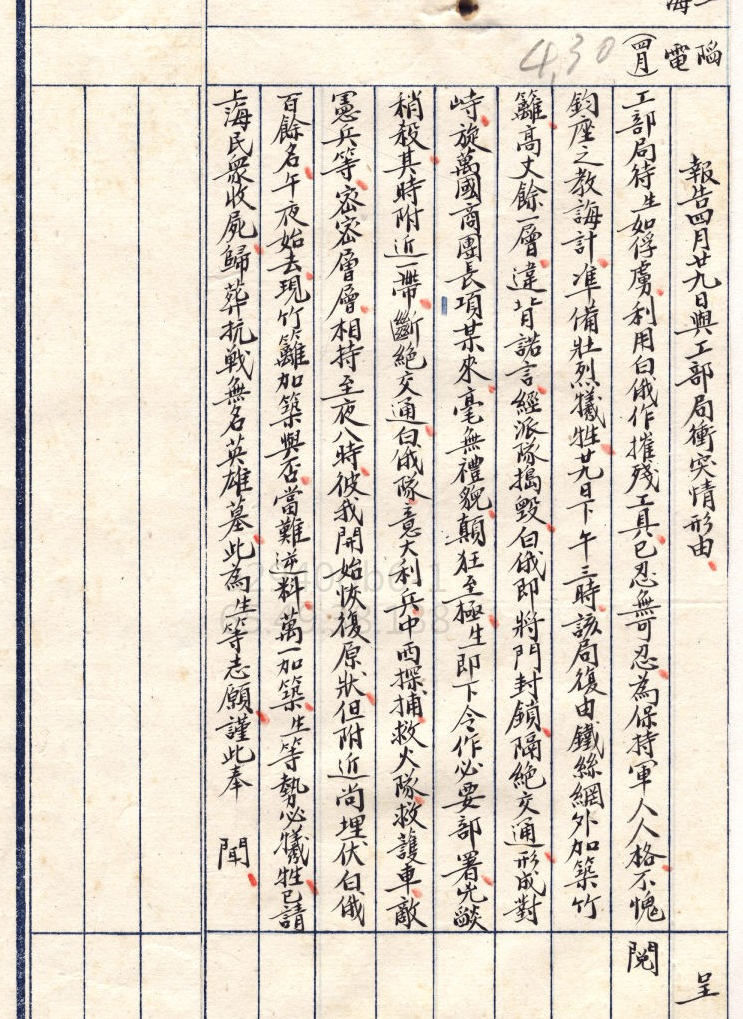 海
電
(四月)
4,30
報告四月廿九日與工部局衝突情形由
工部局待生如俘虜利用白俄作摧殘工具已忍無可忍為保持軍人人格不愧
鈞座之教誨計準備壯烈犧牲廿九日下午三時該局復由鐵絲網外加築竹
籬高丈餘一層違背諾言經派隊搗毀白俄即將門封鎖隔絕交通形成對
峙旋萬國商團長項某來毫無禮貌顛狂至極生即下令作必要部署兇燄
稍殺其時附近一帶斷絕交通白俄隊意大利兵中西探捕救火隊救護車敵
憲兵等密密層層相持至夜八時彼我開始恢復原狀但附近尚埋伏白俄
百餘名午夜始去現竹籬加築與否當難逆料萬一加築生等勢必犧牲已請
上海民衆收屍歸葬抗戰無名英雄墓此為生等志願謹此奉 聞
呈
閱